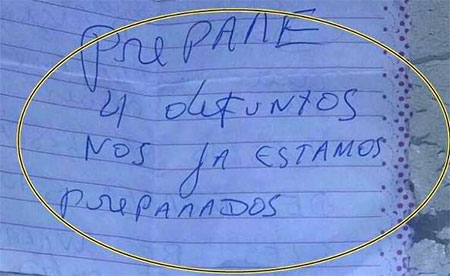 PREPARE
4 DEFUNTOS
NOS JA ESTAMOS
PREPARADOS